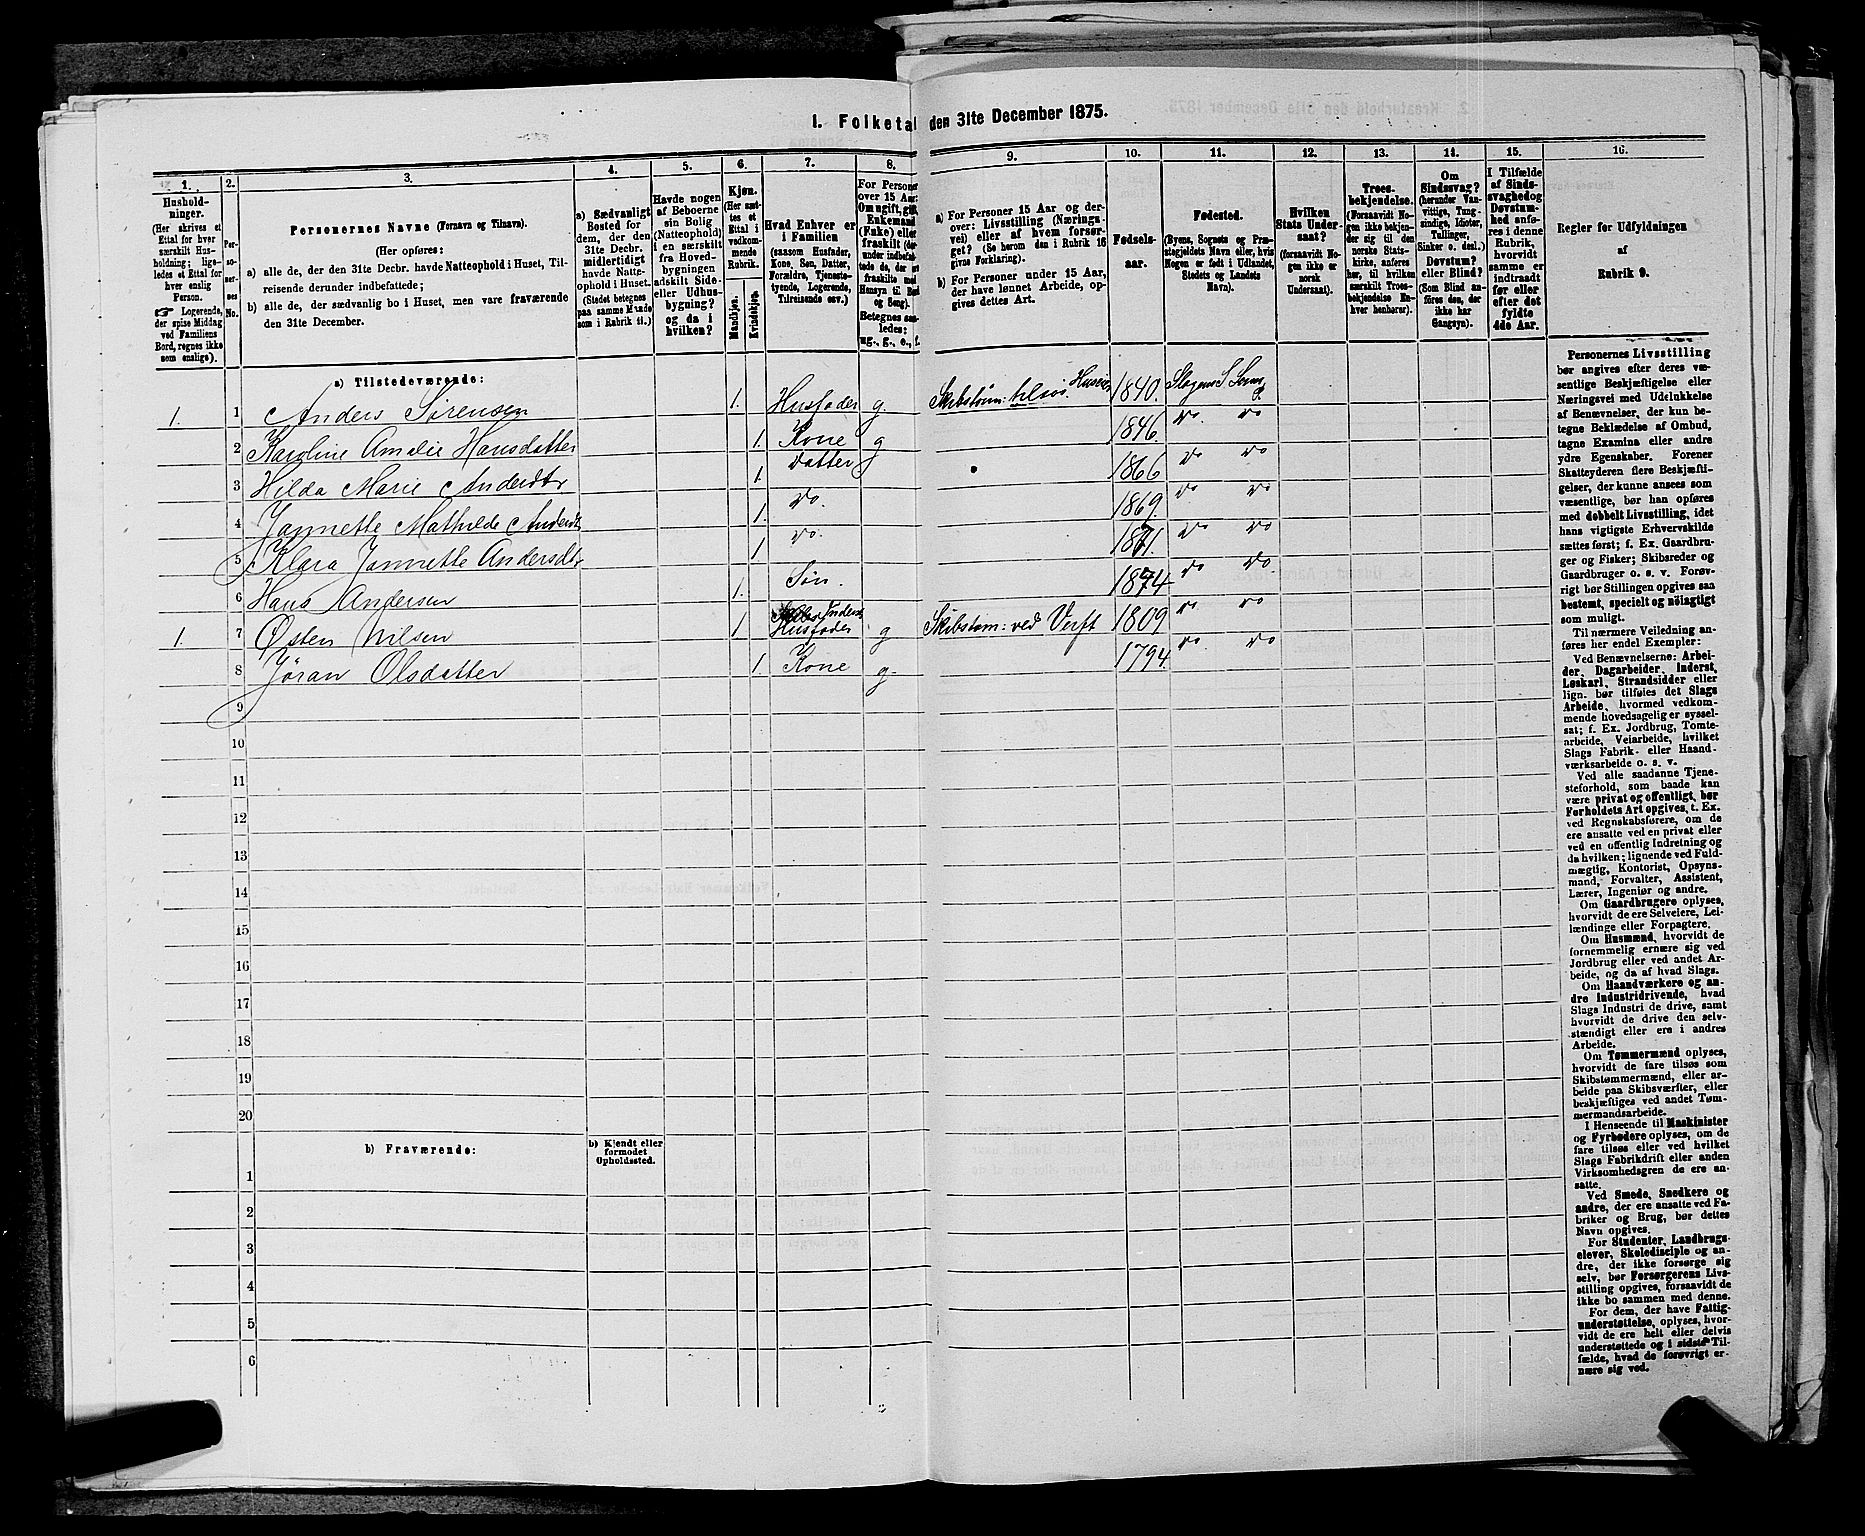 I. Folketal den 31te December 1875.
1. 2. 3. 4. 5. 6. 7. 8. 9. 10. 11. 12. 13. 14. 15. 16.
Hushold-
ninger.
(Her skrives et
Ettal for hver
særskilt Hus-
holdning; lige-
ledes et Ettal for
hver enslig
Person.
☞ Logerende,
der spise Middag
ved Familiens
Bord, regnes ikke
som enslige).
Per-
so-
ner-
nes
No.
Personernes Navne (Fornavn og Tilnavn).
(Her opføres:
a) alle de, der den 31te Decbr. havde Natteophold i Huset, Til-
reisende derunder indbefattede;
b) alle de, der sædvanlig bo i Huset, men vare fraværende
den 31te December.
a) Sædvanligt
Bosted for
dem, der den
31te Decbr.
midlertidigt
havde Natte-
ophold i Huset.
(Stedet betegnes
paa samme Maade
som i Rubrik 11.)
Havde nogen
af Beboerne
sin Bolig
(Natteophold)
i en særskilt
fra Hoved-
bygningen
adskilt Side-
eller Udhus-
bygning?
og da i
hvilken?
Kjøn.
(Her sæt-
tes et
Ettal i
vedkom-
mende
Rubrik.
Mandkjøn.
Kvindekjøn.
Hvad Enhver er
i Familien
(saasom Husfader,
Kone, Søn, Datter,
Forældre, Tjeneste-
tyende, Logerende,
Tilreisende osv.)
For Persone
over 15 Aar:
Om ugift, gift,
Enkemand
(Enke) eller
fraskilt (der-
under indbefat-
tede de, der er
fraskilte med
Hensyn til Bord
og Seng).
Betegnes saa-
ledes:
ug., g., e., f.
a) For Personer 15 Aar og der-
over: Livsstilling (Nærings-
vei) eller af hvem forsør-
get? (Se herom den i Rubrik 16
givne Forklaring).
b) For Personer under 15 Aar,
der have lønnet Arbeide, op-
gives dettes Art.
Fødsels-
aar.
Fødested.
(Byens, Sognets og Præ-
stegjeldets Navn eller, hvis
Nogen er født i Udlandet,
Stedets og Landets
Navn).
Hvilken
Stats Under-
saat?
(forsaavidt No-
gen ikke er
norsk
Undersaat).
Troes-
bekjendelse.
(Forsaavidt No-
gen ikke bekjen-
der sig til den
norske Stats-
kirke, anføres
her, til hvilken
særskilt Troes-
bekjendelse En-
hver henhører).
Om
Sindssvag?
(herunder Van-
vittige, Tung-
sindige, Idioter,
Tullinger,
Sinker o. desl.)
Døvstum?
eller Blind?
(Som Blind an-
føres den, der
ikke har
Gangsyn).
I Tilfælde
af Sinds-
svaghed og
Døvstum-
hed anfø-
res i denne
Rubrik,
hvorvidt
samme er
indtraadt
før eller
efter det
fyldte
4de Aar.
Regler for Udfyldningen
af
Rubrik 9.
a) Tilstedeværende:
1. 1 Anders Sørensen 1. Husfader g. Skibstøm: tilsøs. Huseier 1840. Slagens S Sems P.
2 Karoline Amalie Hansdatter 1. Kone g 1846. do do
3 Hilda Marie Andersdtr 1. Datter g 1866 do do
4 Jannette Mathilde Andersdt 1. do. 1869. do do
5 Klara Jannette Andersdtr 1 do. 1871. do do
6 Hans Andersen 1. Søn. 1874 do do
1. 7 Østen Nilsen 1 Husfader g Skibstøm: ved Verft 1809 do do
8 Jøran Olsdatter 1. Kone g. 1794 do do
9
10
11
12
13
14
15
16
17
18
19
20
b) Fraværende:
b) Kjendt eller
formodet
Opholdssted.
1
2
3
4
5
6
Personernes Livsstilling
bør angives efter deres væ-
sentlige Beskjæftigelse eller
Næringsvei med Udelukkelse
af Benævnelser, der kun be-
tegne Beklædelse af Ombud,
tagne Examina eller andre
ydre Egenskaber. Forener
Skatteyderen flere Beskjæfti-
gelser, der kunne ansees som
væsentlige, bør han opføres
med dobbelt Livsstilling, idet
hans vigtigste Erhvervskilde
sættes først; f. Ex. Gaardbru-
ger og Fisker; Skibsreder og
Gaardbruger o. s. v. Forøv-
rigt bør Stillingen opgives saa
bestemt, specielt og nøiagtigt
som muligt.
Til nærmere Veiledning an-
føres her endel Exempler:
Ved Benævnelserne: Arbei-
der, Dagarbeider, Inderst,
Løskarl, Strandsidder eller
lign. bør tilføies det Slags
Arbeide, hvormed vedkom-
mende hovedsagelig er syssel-
sat; f. Ex. Jordbrug, Tomte-
arbeide, Veiarbeide, hvilket
Slags Fabrik- eller Haand-
værksarbeide o. s. v.
Ved alle saadanne Tjene-
steforhold, som baade kan
være privat og offentligt, bør
Forholdets Art opgives, t. Ex.
ved Regnskabsførere, om de
ere ansatte ved en privat eller
ved en offentlig Indretning og
da hvilken; lignende ved Fuld-
mægtig, Kontorist, Opsyns-
mand, Forvalter, Assistent,
Lærer, Ingeniør og andre.
Om Gaardbrugere oplyses,
hvorvidt de ere Selveiere, Lei-
lændinge eller Forpagtere.
Om Husmænd, hvorvidt de
fornemmelig ernære sig ved
Jordbrug eller ved andet Ar-
beide, og da af hvad Slags.
Om Haandværkere og an-
dre Industridrivende, hvad
Slags Industri de drive, samt
hvorvidt de drive den selv-
stændigt eller ere i andres
Arbeide.
Om Tømmermænd oplyses,
hvorvidt de fare tilsøs som
Skibstømmermænd, eller ar-
beide paa Skibsværfter, eller
beskjæftiges ved andet Tøm-
mermandsarbeide.
I Henseende til Maskinister
og Fyrbødere oplyses, om de
fare tilsøs eller ved hvilket
Slags Fabrikdrift eller anden
Virksomhedsgren de ere an-
satte.
Ved Smede, Snedkere og
andre, der ere ansatte ved Fa-
briker og Brug, bør dettes
Navn opgives.
For Studenter, Landbrugs-
elever, Skoledisciple og an-
dre, der ikke forsørge sig
selv, bør Forsørgerens Livs-
stilling opgives, forsaavidt de
ikke bo sammen med denne.
For dem, der have Fattig-
understøttelse, oplyses, hvor-
vidt de ere helt eller delvis
understøttede og i sidste Til-
fælde, hvad de forøvrigt er-
nære sig ved.